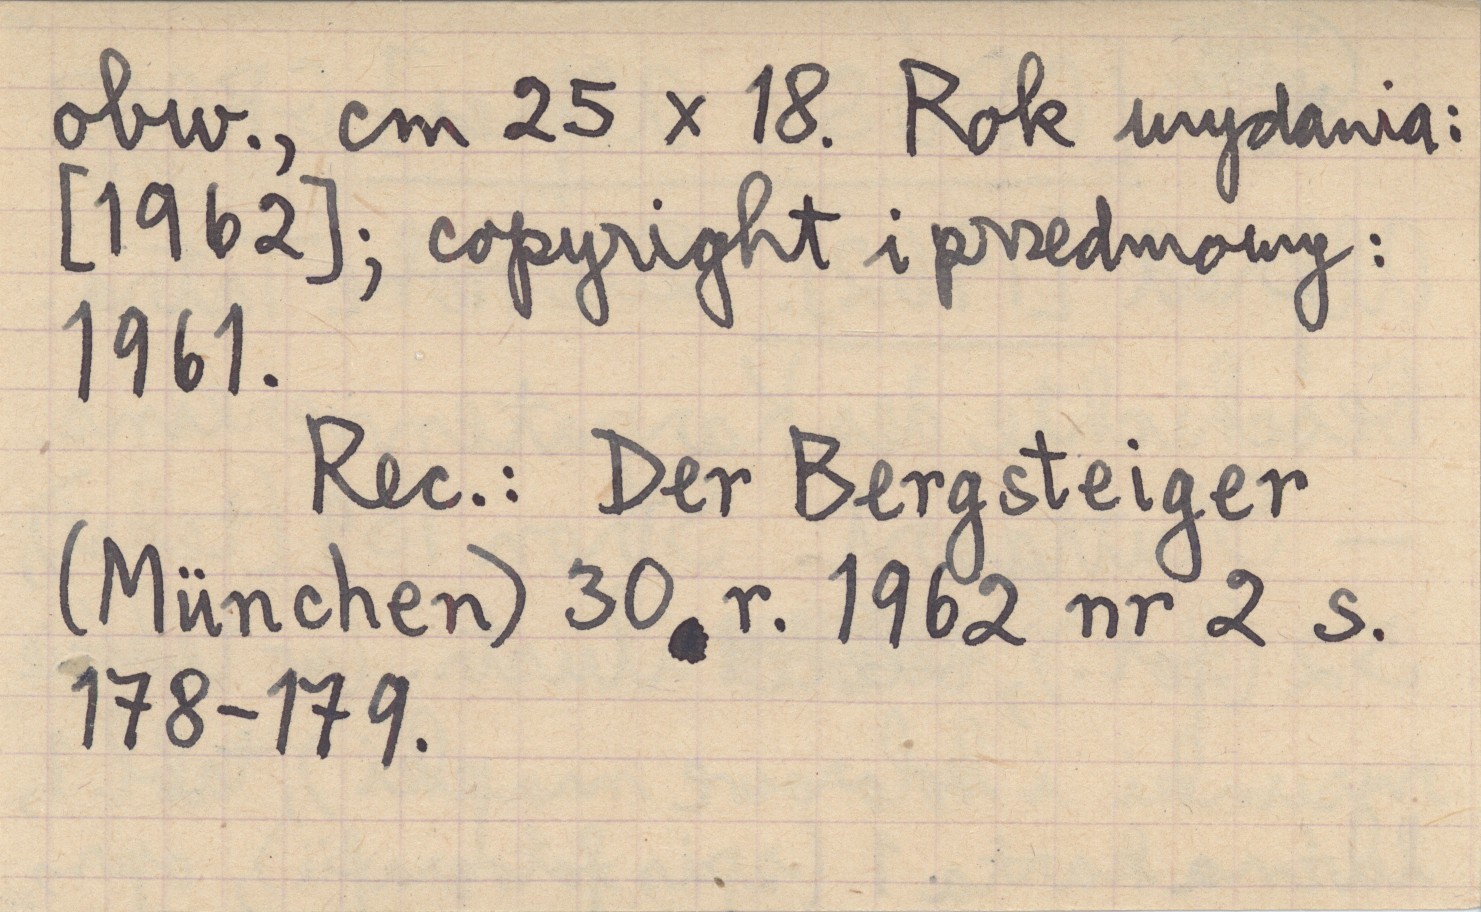 obw., cm 25 x 18. Rok wydania:
[1962]; copyright i przedmowy:
1961.
Rec.: Der Bergsteiger
(München) 30. r. 1962 nr 2 s.
178-179.